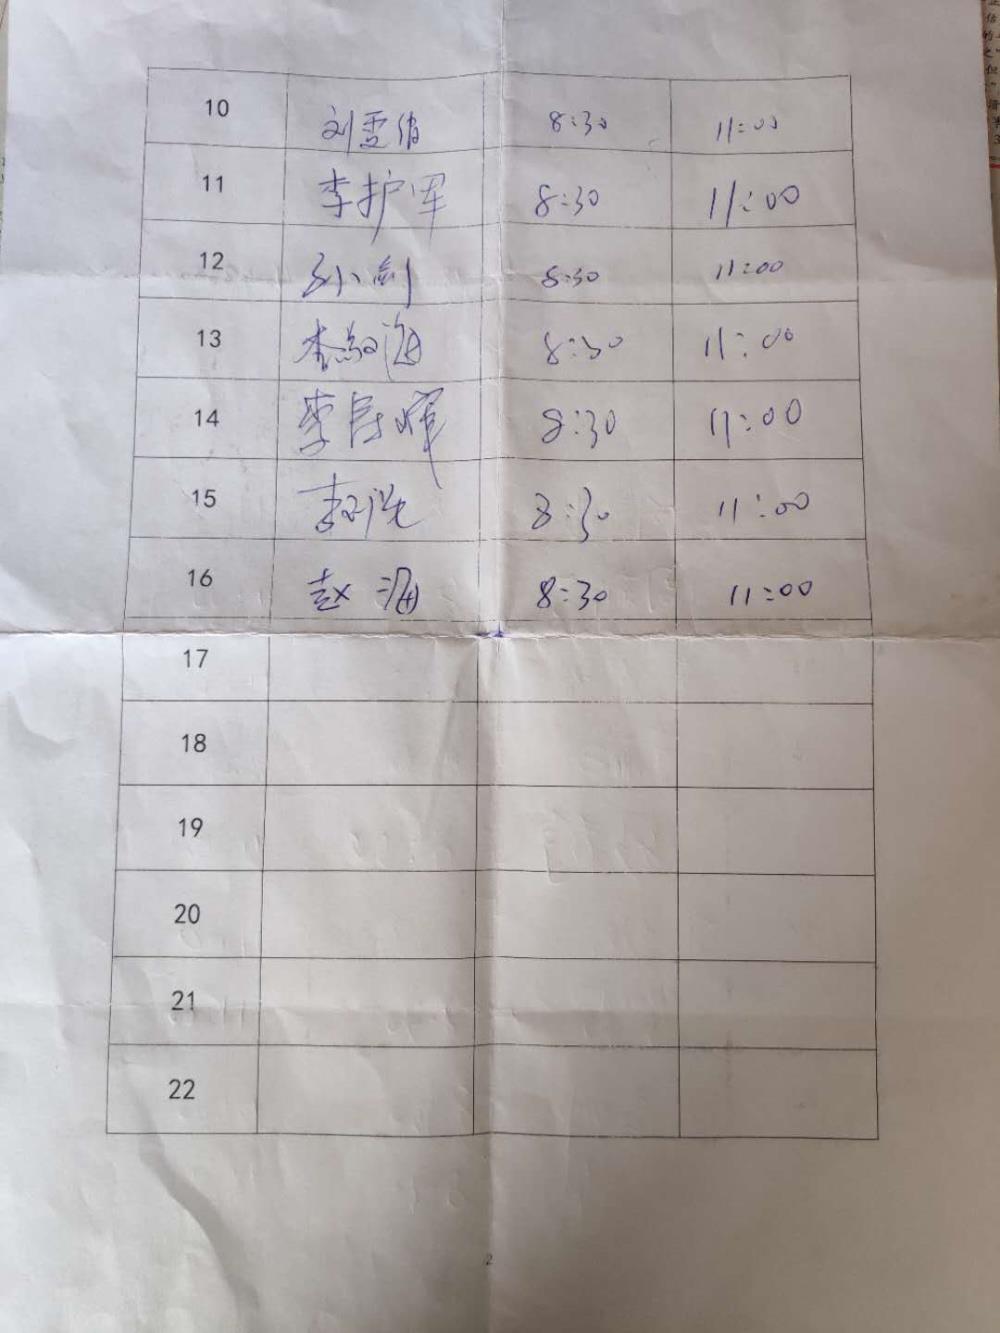 10 刘雪娟 8:30 11:00
11 李护军 8:30 11:00
12 孙剑 8:30 11:00
13 8:30 11:00
14 李良辉 8:30 11:00
15 8:30 11:00
16 赵海 8:30 11:00
17
18
19
20
21
22
2